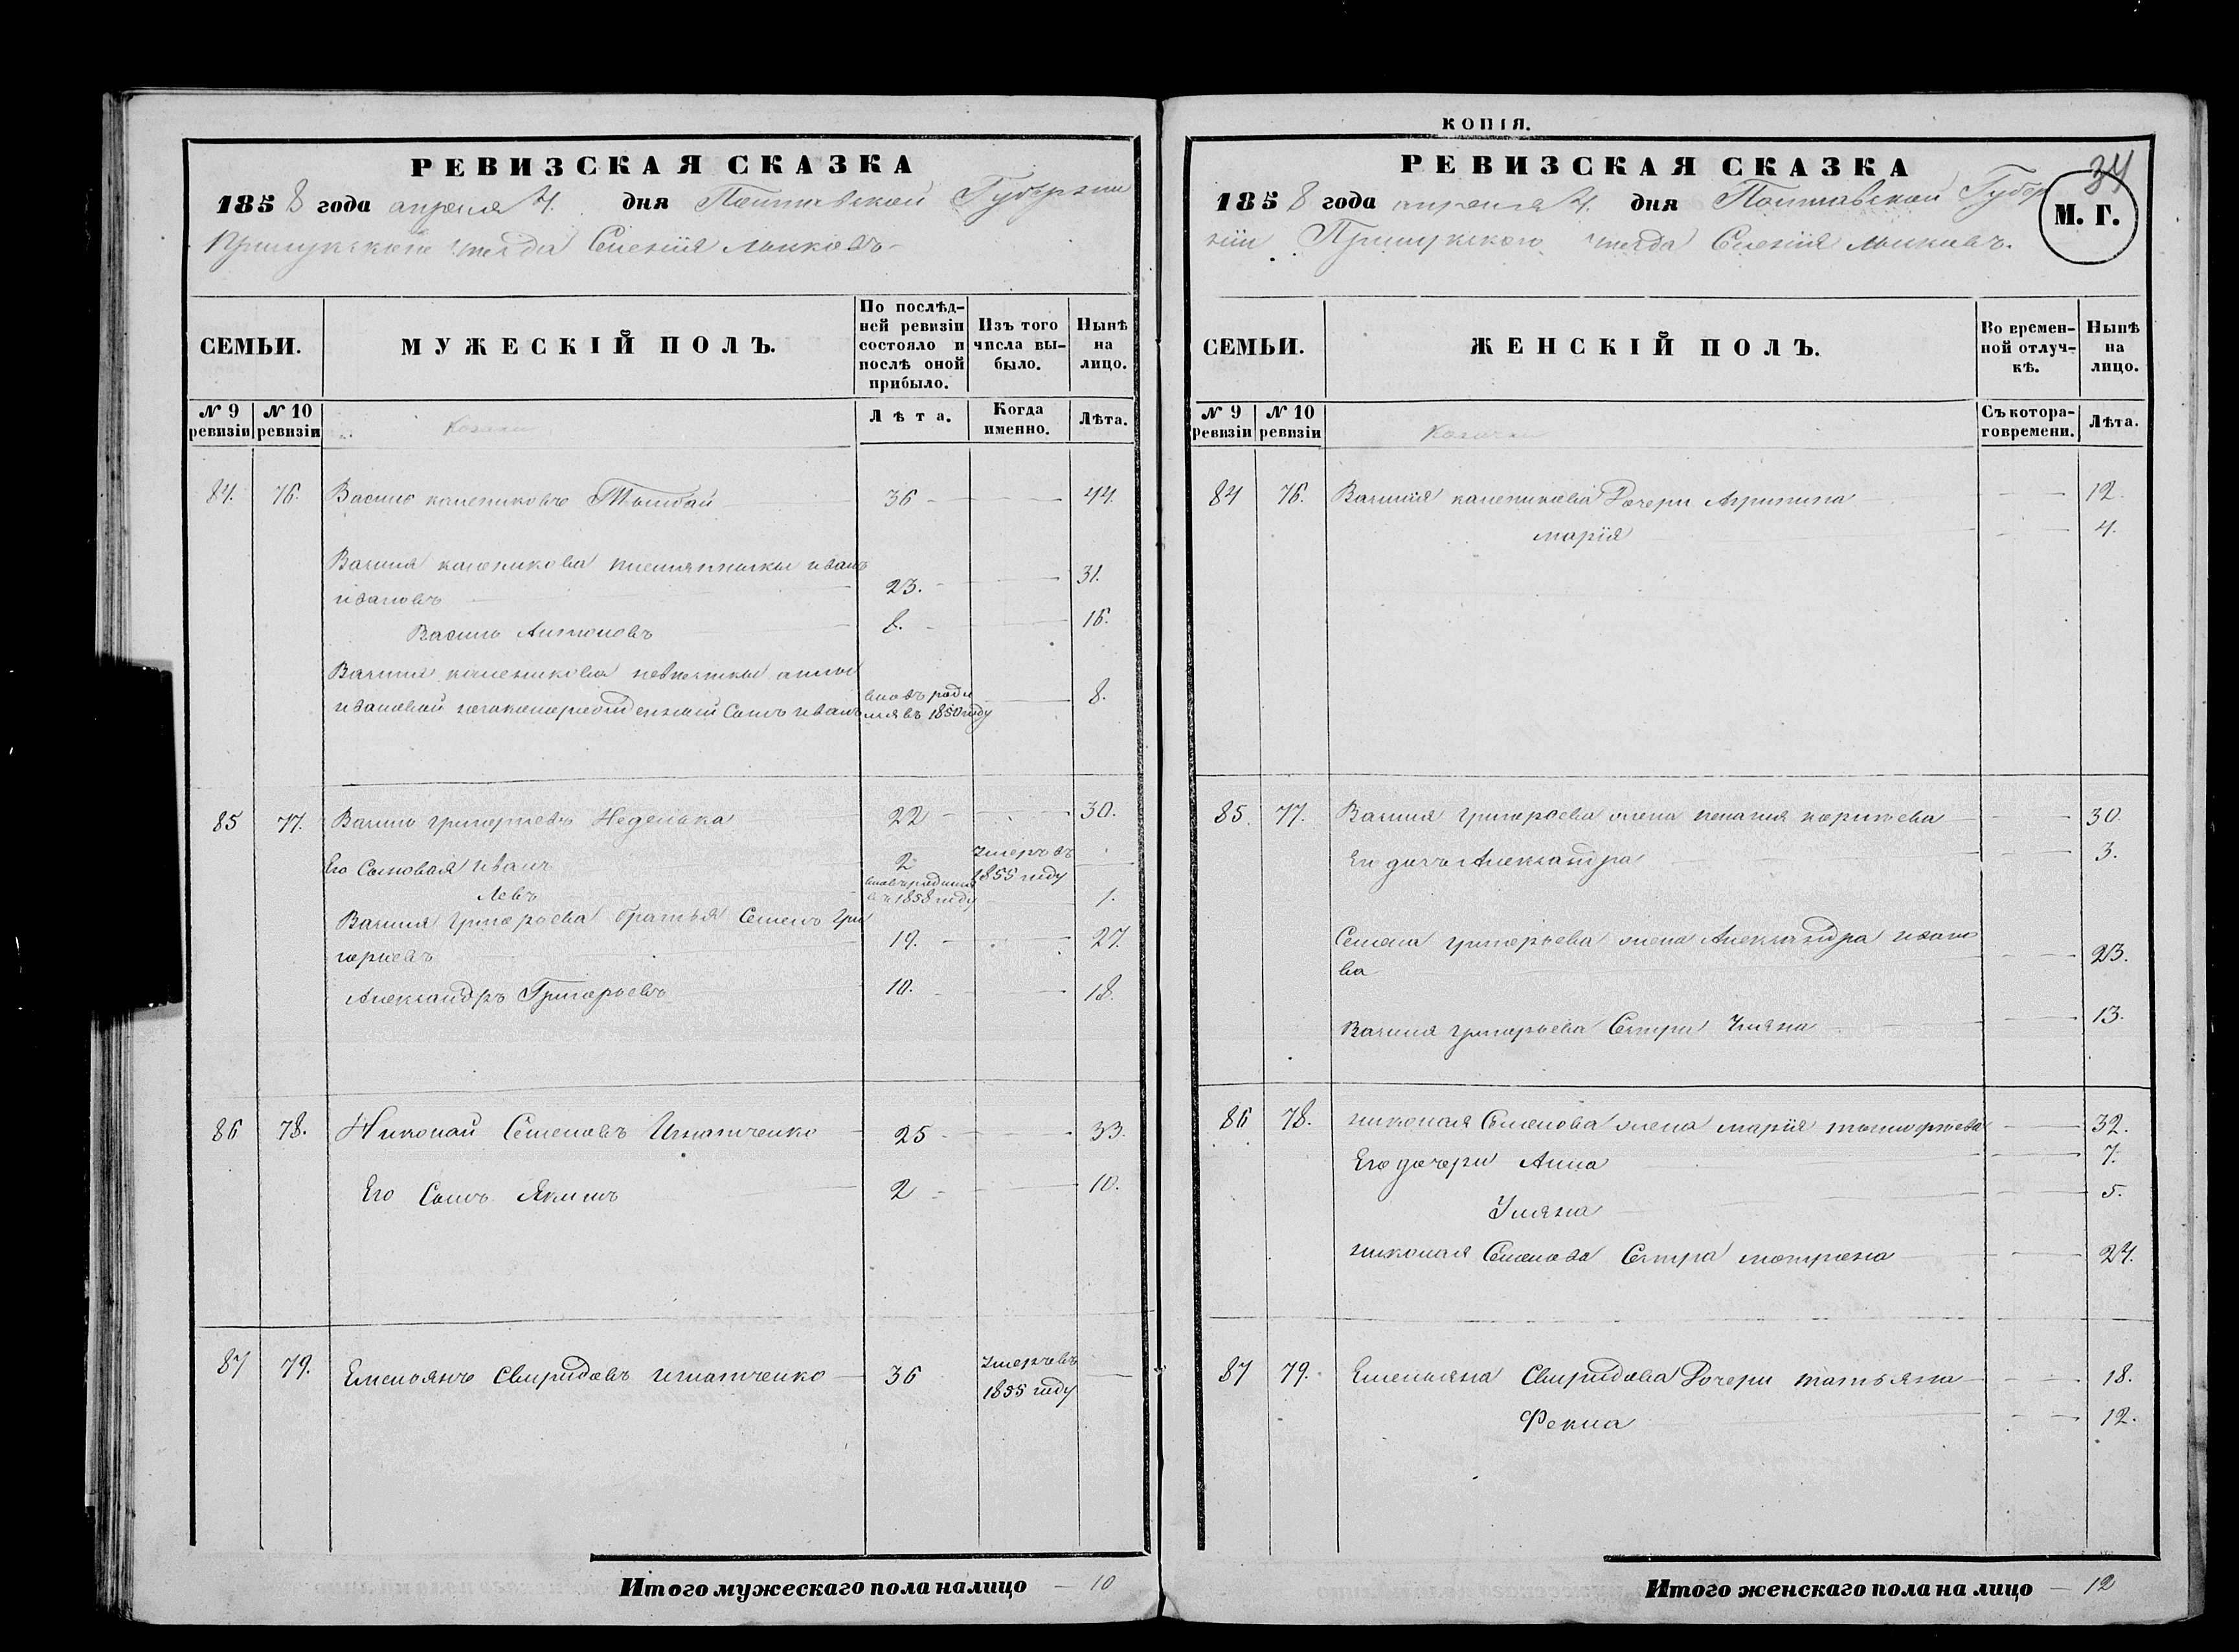 РЕВИЗСКАЯ СКАЗКА
1858 года апреля 4. дня Полтавской Губернии
Прилукского уезда Селенія
СЕМЬИ.
МУЖЕСКІЙ ПОЛЪ.
По послѣд-
ней ревизіи
состояло и
послѣ оной
прибыло.
Изъ того
числа вы-
было.
Нынѣ
на
лицо.
№ 9
ревизіи
№ 10
ревизіи
Козаки
Лѣта.
Когда
именно.
Лѣта.
84. 76. Василь калениковъ 36 44.
Василия каленикова племянники иванъ
ивановъ 23. 31.
Василь Антоновъ 8. 16.
Василия каленикова невестки анны
ивановой незаконорожденный Сынъ иванъ вновь роди
лся въ 1850 году 8.
85 77. Василь григорьевъ Неделька 22 30.
Его Сыновья иванъ 2 умеръ въ
1855 году
Левъ вновь родился
въ 1858 году 1.
Василия Григорьева братья Семенъ гри
горьевъ 19. 27.
Александръ Григорьевъ 10. 18.
86 78. Николай Семеновъ Игнатченко 25 33.
Его Сынъ Якимъ 2 10.
87 79. Емельянъ Свиридовъ игнатченко 36 умеръ въ
1855 году
Итого мужескаго пола налицо 10
КОПІЯ.
РЕВИЗСКАЯ СКАЗКА
34
М. Г.
1858 года апреля 4. дня Полтавской Губер
ніи Прилукского уезда Селенія
СЕМЬИ.
ЖЕНСКІЙ ПОЛЪ.
Во времен-
ной отлуч-
кѣ.
Нынѣ
на
лицо.
№ 9
ревизіи
№ 10
ревизіи
Козачки
Съ котора-
го времени.
Лѣта.
84 76. Василия каленикова Дочери Агрипина 12.
марія 4.
85. 77. Василия григорьева жена пелагия 30.
Его дочь Александра 3.
Семена григорьева жена Александра ивано
ва 23.
Василия григорьева Сестра Уляна 13.
86 78. николая Семенова жена марія 32.
Его дочери Анна 7.
Уляна 5.
николая Семенова Сестра мотрона 24.
87 79. Емельяна Свиридова Дочери татьяна 18.
Фекла 12.
Итого женскаго пола на лицо 12